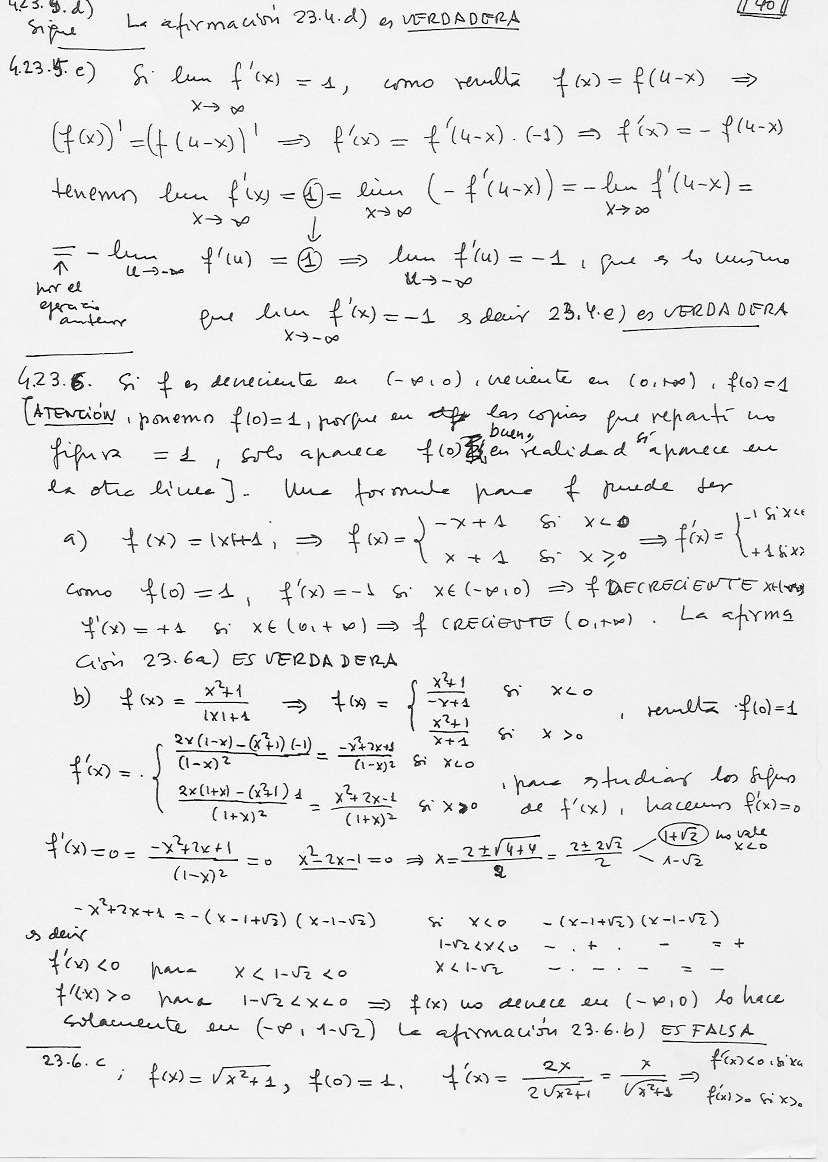 4.23.5.d) La afirmación 23.4.d) es VERDADERA 40
Sigue
4.23.5.e) Si lim f'(x) = 1, como resulta f(x) = f(4-x) ⇒
x→∞
(f(x))' = (f(4-x))' ⇒ f'(x) = f'(4-x)·(-1) ⇒ f'(x) = - f(4-x)
tenemos lim f'(x) = ① = lim (- f'(4-x)) = - lim f'(4-x) =
x→∞ ↓ x→∞ x→∞
= - lim f'(u) = ① ⇒ lim f'(u) = -1, que es lo mismo
↑ u→-∞ u→-∞
por el
ejercicio
anterior que lim f'(x) = -1 es decir 23.4.e) es VERDADERA
x→-∞
4.23.6. Si f es decreciente en (-∞,0), creciente en (0,+∞), f(0)=1
[ATENCIÓN, ponemos f(0)=1, porque en las copias que repartí no
figura = 1, solo aparece f(0) bueno, en realidad sí aparece en
la otra línea]. Una formula para f puede ser
a) f(x) = |x|+1; ⇒ f(x) = { -x+1 si x<0 ⇒ f'(x) = { -1 si x<
x+1 si x≥0 +1 si x>
como f(0) = 1, f'(x) = -1 si x∈(-∞,0) ⇒ f DECRECIENTE
f'(x) = +1 si x∈(0,+∞) ⇒ f CRECIENTE (0,+∞). La afirma
ción 23.6a) ES VERDADERA
b) f(x) = x²+1/|x|+1 ⇒ f(x) = { x²+1/-x+1 si x<0
x²+1/x+1 si x>0 , resulta f(0)=1
f'(x) = { 2x(1-x)-(x²+1)(-1)/(1-x)² = -x²+2x+1/(1-x)² si x<0
2x(1+x)-(x²+1)1/(1+x)² = x²+2x-1/(1+x)² si x≥0 , para estudiar los signos
de f'(x), hacemos f'(x)=0
f'(x)=0= -x²+2x+1/(1-x)² =0 x²-2x-1=0 ⇒ x= 2±√4+4/2 = 2±2√2/2 1+√2 no vale x<0
1-√2
-x²+2x+1 = -(x-1+√2)(x-1-√2) si x<0 -(x-1+√2)(x-1-√2)
es decir 1-√2<x<0 - · + · - = +
f'(x)<0 para x<1-√2<0 x<1-√2 - · - · - = -
f'(x)>0 para 1-√2<x<0 ⇒ f(x) no decrece en (-∞,0) lo hace
solamente en (-∞, 1-√2) La afirmación 23.6.b) ES FALSA
23.6.c ; f(x) = √x²+1, f(0)=1. f'(x) = 2x/2√x²+1 = x/√x²+1 ⇒ f'(x)<0, si x<
f'(x)>0 si x>0